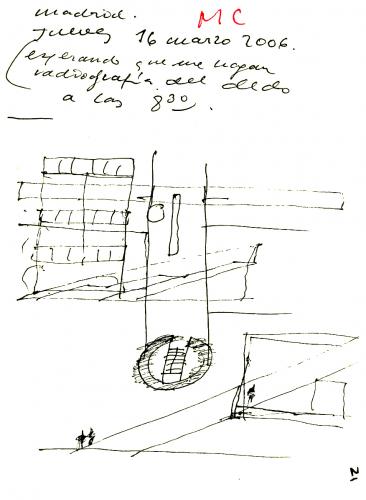 madrid.
MC
jueves 16 marzo 2006.
(esperando que me hagan
radiografía del dedo
a las 8³⁰.
N